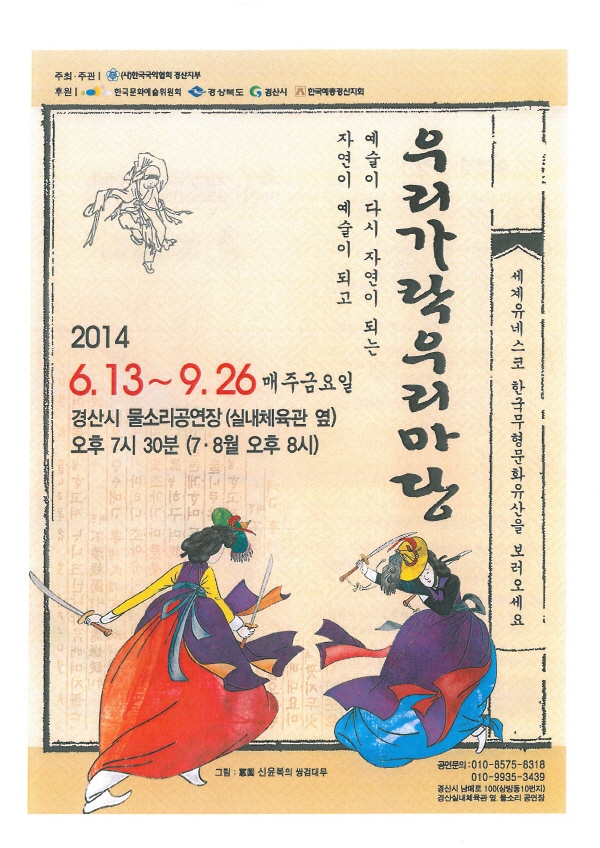 주최 · 주관 | (사)한국국악협회 경산지부
후원 | 한국문화예술위원회 경상북도 경산시 한국예총경산지회
우리가락우리마당
예술이 다시 자연이 되는
자연이 예술이 되고
세계유네스코 한국무형문화유산을 보러오세요
2014
6. 13 ~ 9. 26 매주금요일
경산시 물소리공연장 (실내체육관 옆)
오후 7시 30분 (7 · 8월 오후 8시)
그림 : 蕙園 신윤복의 쌍검대무
공연문의 : 010-8575-8318
010-9935-3439
경산시 남매로 100(삼빙동10번지)
경산실내체육관 옆. 물소리 공연장